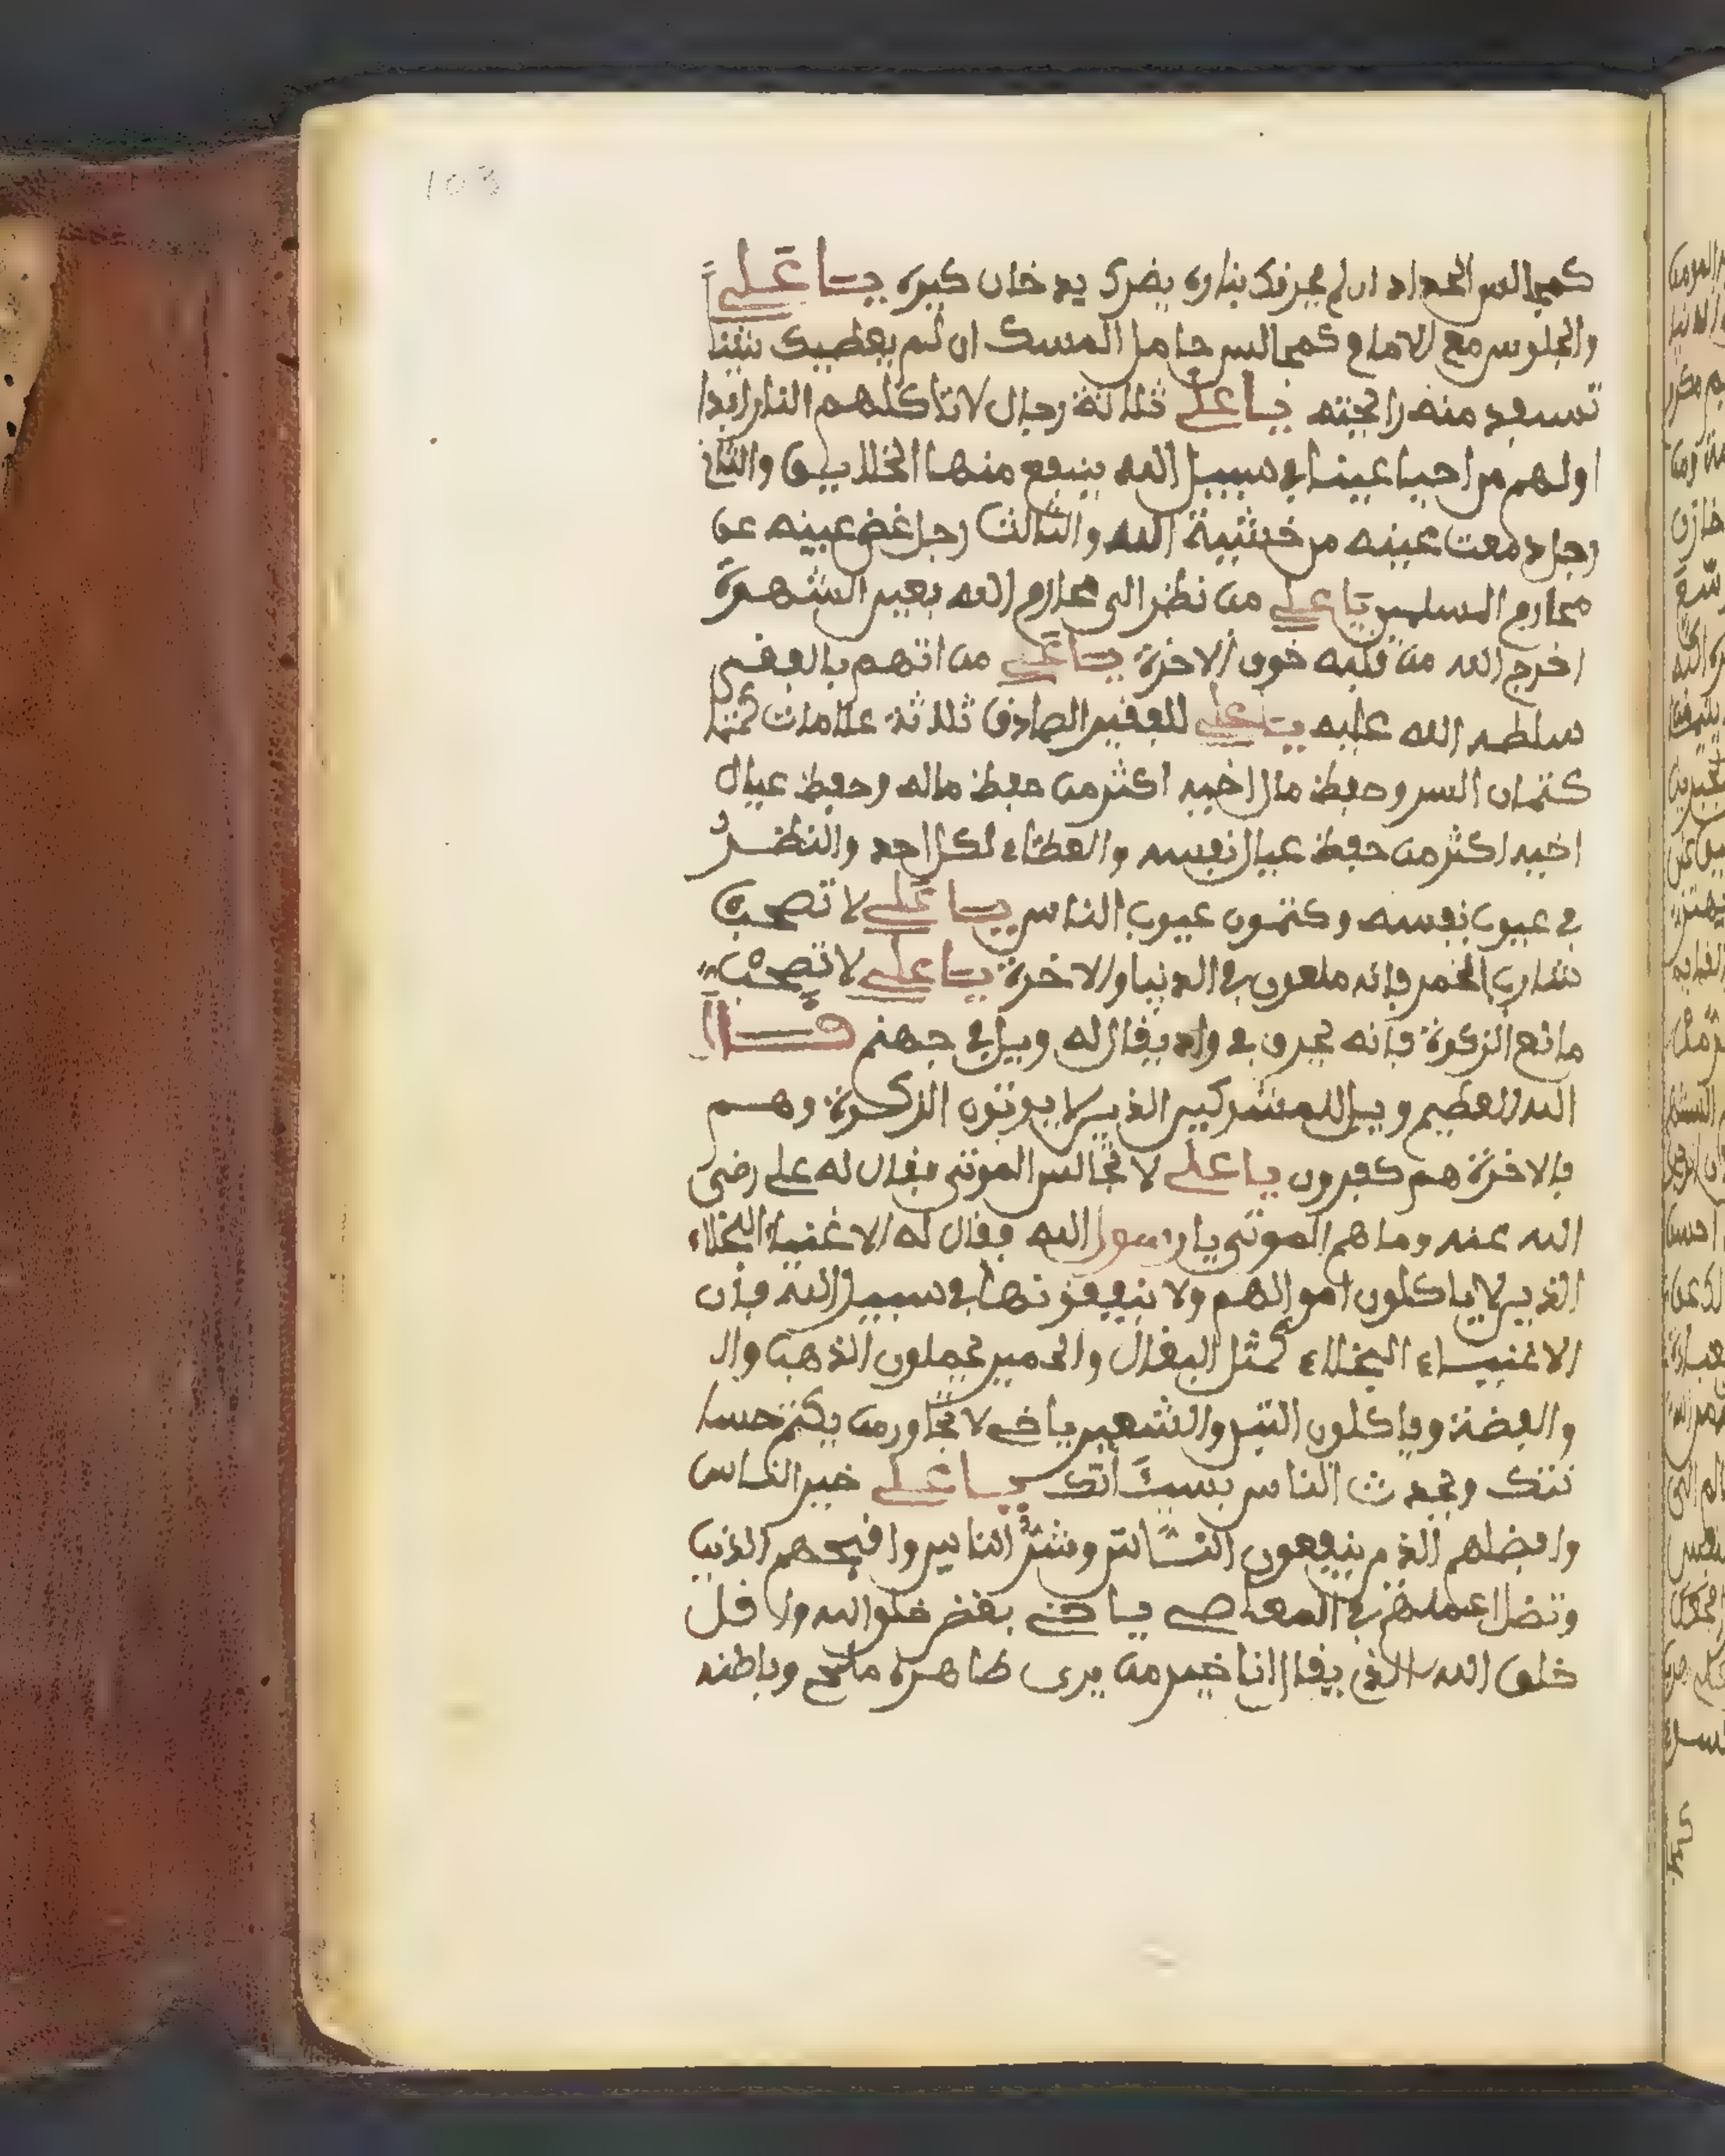 103
كمجالس الحداد ان لم يحرفك بناره يضرك بدخان كيره يا علي
والجلوس مع الامام كمجالس حامل المسك ان لم يعطيك شيئا
تستعد منه رايحته يا علي ثلاثة رجال لا تاكلهم النار ابدا
اولهم من احيا عينا في سبيل الله ينبع منها الخلايق والثاني
رجل دمعت عينه من خشية الله والثالث رجل غض عينه عن
محارم المسلمين يا علي من نظر الى محارم الله بعين الشهوة
اخرج الله من قلبه خوف الاخرة يا علي من اتهم بالفقر
سلطه الله عليه يا علي للفقير الصادق ثلاثة علامات
كتمان السر وحفظ مال اخيه اكثر من حفظ ماله وحفظ عيال
اخيه اكثر من حفظ عيال نفسه والعطاء لكل احد والنظر
في عيوب نفسه وكتمون عيوب الناس يا علي لا تصحب
شارب الخمر فانه ملعون في الدنيا والاخرة يا علي لا تصحب
مانع الزكوة فانه يحرق في واد يقال له ويل في جهنم قال
الله العظيم ويل للمشركين الذين لا يوتون الزكوة وهم
بالاخرة هم كفرون يا علي لا تجالس الموتى فقال له علي رضي
الله عنه وما هم الموتى يا رسول الله فقال له الاغنياء البخلاء
الذين لا ياكلون اموالهم ولا ينفقونها في سبيل الله فان
الاغنياء البخلاء كمثل البغال والحمير يحملون الذهب وال
والفضة وياكلون التبن والشعير يا خي لا تجاور من يكتم حسنا
تتك ويحدث الناس بسيئاتك يا علي خير الناس
وافضلهم الذين ينفعون الناس وشر الناس واقبحهم الذين
المعاصي يا خي بغض خلق الله واقل
خلق الله الذي يقال انا خير من يرى ظاهره مليح وباطنه